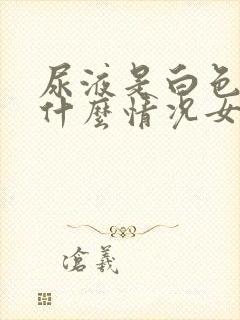 尿液是白色
什麼情況女
滄羲